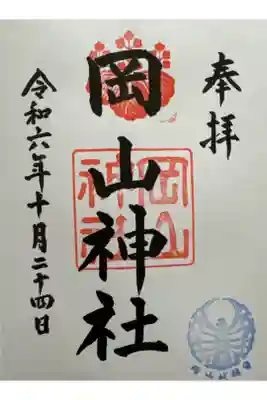 奉拝
岡山神社
岡山神社
令和六年十月二十四日